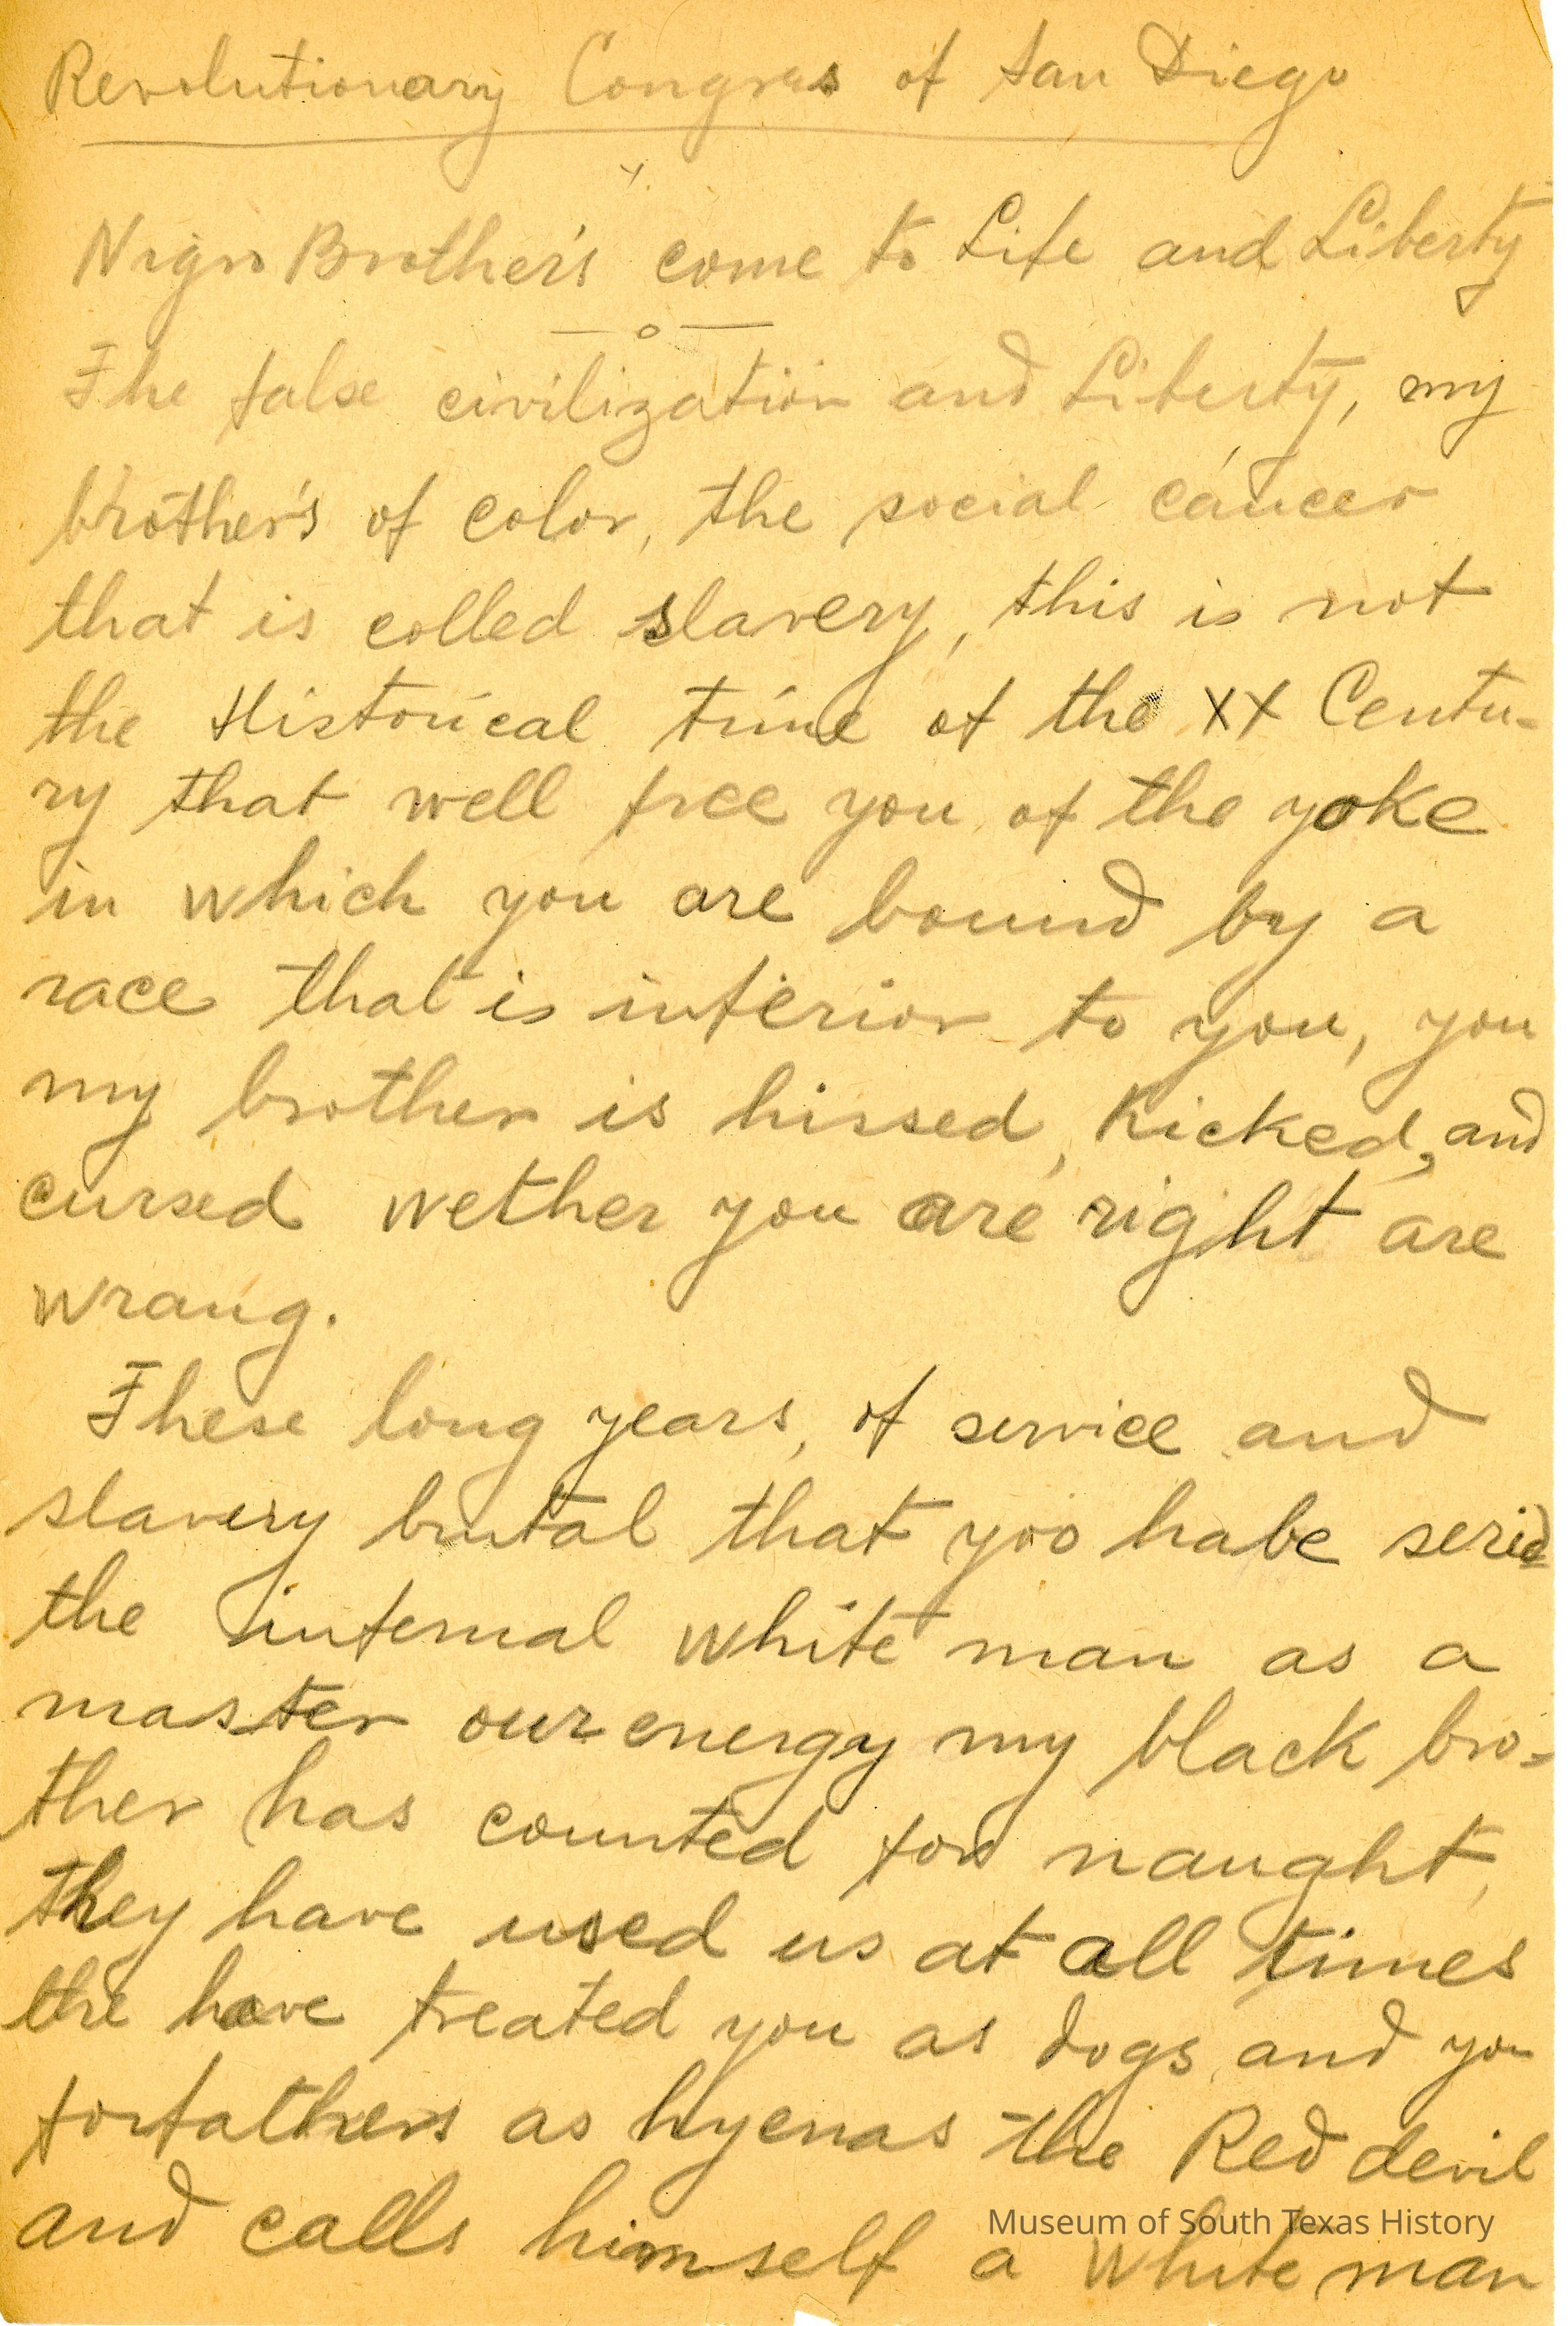 Revolutionary Congres of San Diego
Nigro Brother's come to Life and Liberty
The false civilization and Liberty, my
brother's of color, the social cáncer
that is colled slavery, this is not
the Historical time of the XX Centu-
ry that well free you of the yoke
in which you are bound by a
race that is inferior to you, you
my brother is hissed, kicked, and
cursed wether you are right are
wrang.
These long years, of service and
slavery brutal that yoo habe serid
the infernal white man as a
master our energy my black bro-
ther has counted for naught,
they have used us at all times
the have treated you as dogs and you
forfathers as hyenas the Red devil
and calls himself a white man
Museum of South Texas History